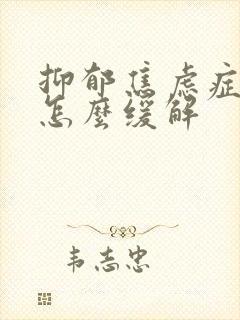 抑郁焦虑症
怎麼缓解
韦志忠